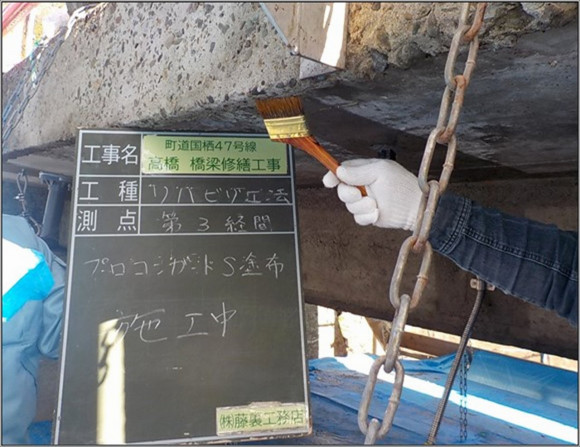 工事名
町道国栖47号線
高橋 橋梁修繕工事
工種 リハビリ工法
測点 第3経間
プロコンガードS塗布
施工中
㈱藤裏工務店